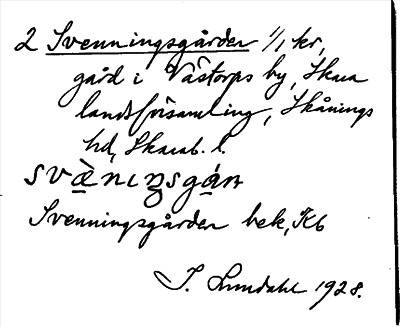 2 Svenningsgården 1/1 kr,
gård i Västorps by, Skara
landsförsamling, Skånings
hd, Skarab. l.
svæ̀nıŋsgán
Svenningsgården bek, Kb
I. Lundahl 1928.